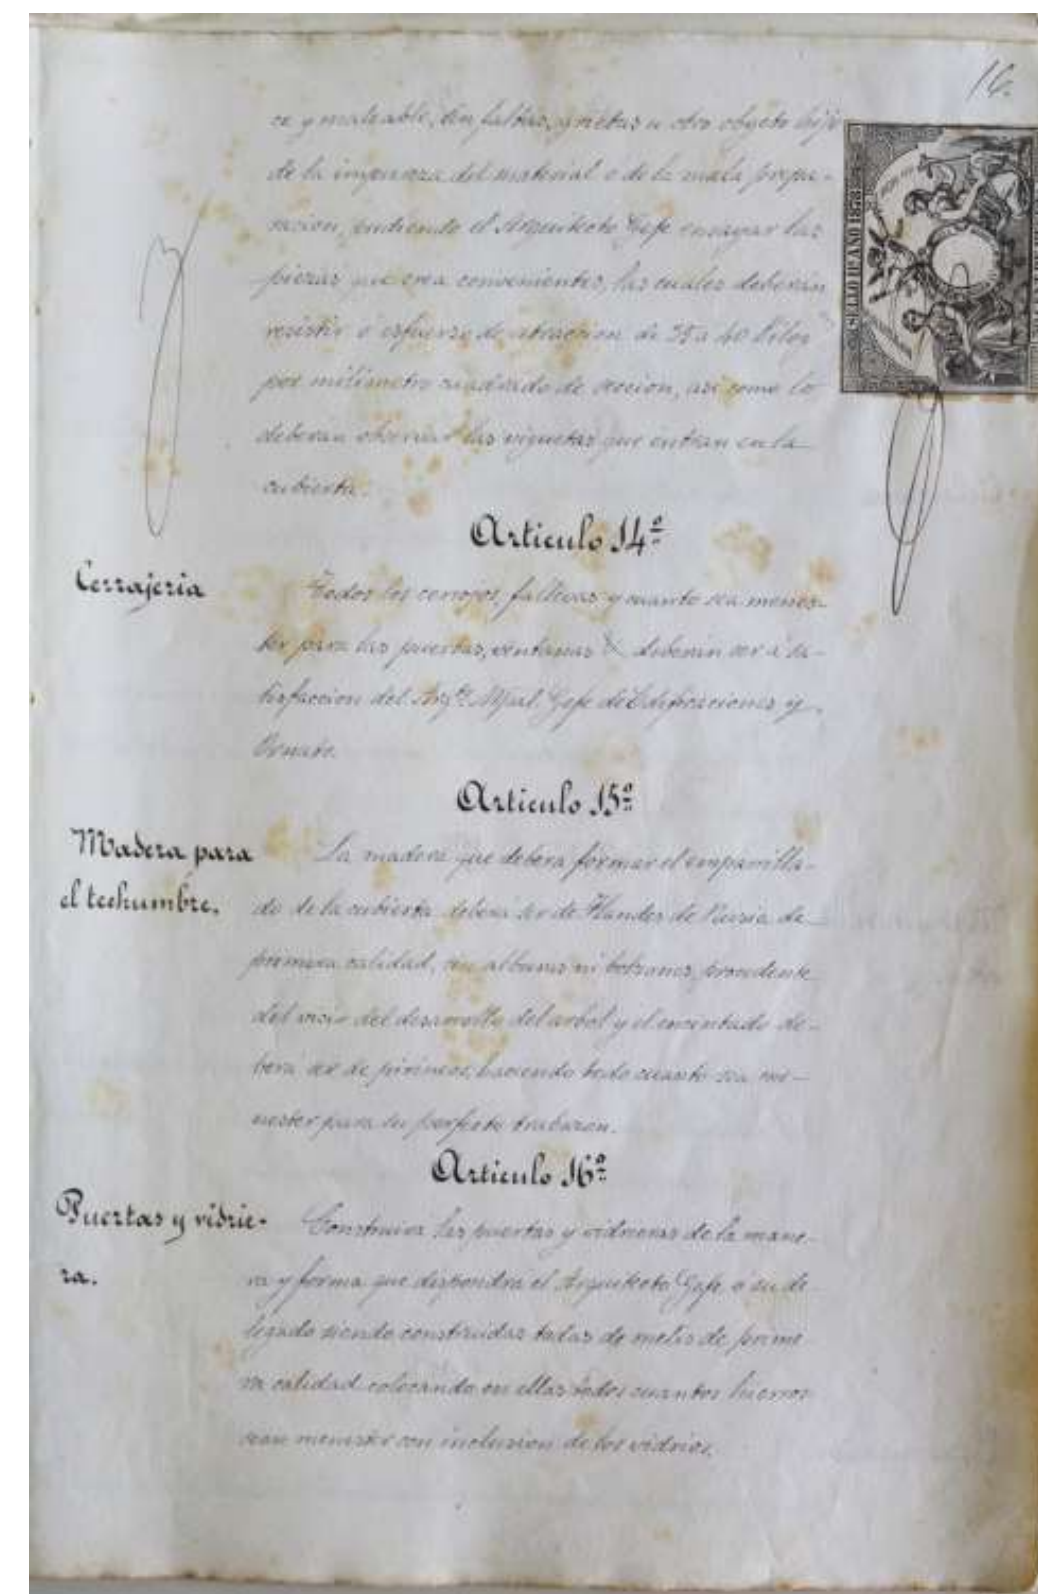 16.
SELLO 11º AÑO 1878
ce y maleable, sin faltas, grietas u otro objeto hijo
de la impureza del material o de la mala prepa-
racion, pudiendo el Arquitecto Gefe ensayar las
piezas que crea convenientes, las cuales deberán
resistir o esfuerzo de atraccion de 35 a 40 Kilos
por milimetro cuadrado de seccion, asi como lo
deberan observar las viguetas que entran en la
cubierta.
Articulo 14º
Cerrajeria
Todos los cerrojos, fallevas y cuanto sea menes-
ter para las puertas, ventanas & deberán ser á sa-
tisfaccion del Arqto Mpal Gefe de Edificaciones y
Ornato.
Articulo 15º
Madera para
el techumbre.
La madera que debera formar el emparrilla-
do de la cubierta deberá ser de Flandes de Rusia de
primera calidad, sin alburas ni procedente
del vicio del desarrollo del arbol y el encintado de-
berá ser de pirineos, haciendo todo cuanto sea me-
nester para su perfecta trabazon.
Articulo 16º
Puertas y vidrie-
ra.
Construira las puertas y vidrieras de la mane-
ra y forma que dispondrá el Arquitecto Gefe o su de-
legado siendo construidas todas de melis de prime-
ra calidad colocando en ellas todos cuantos hierros
sean menester con inclusion de los vidrios.